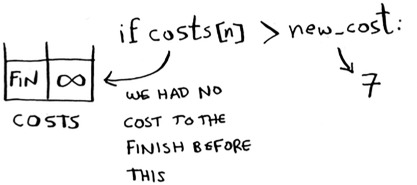 if costs[n] > new_cost:
FIN ∞
COSTS
WE HAD NO
COST TO THE
FINISH BEFORE
THIS
7